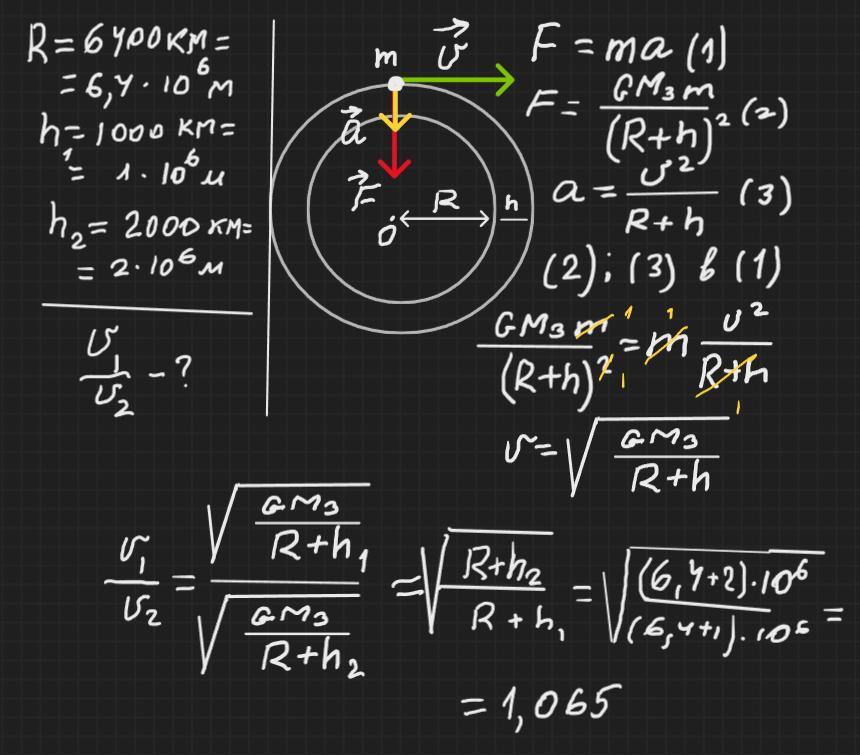 R = 6400 км =
= 6,4 · 10⁶ м
h₁ = 1000 км =
= 1 · 10⁶ м
h₂ = 2000 км =
= 2 · 10⁶ м
υ₁/υ₂ - ?
m υ⃗
a⃗
F⃗ R h
O
F = ma (1)
F = GMз m/(R+h)² (2)
a = υ²/(R+h) (3)
(2); (3) в (1)
GMз m/(R+h)² = m υ²/(R+h)
1 1
1 1
υ = √(GMз/(R+h))
υ₁/υ₂ = √(GMз/(R+h₁))/√(GMз/(R+h₂)) = √((R+h₂)/(R+h₁)) = √((6,4+2)·10⁶/(6,4+1)·10⁶) =
= 1,065